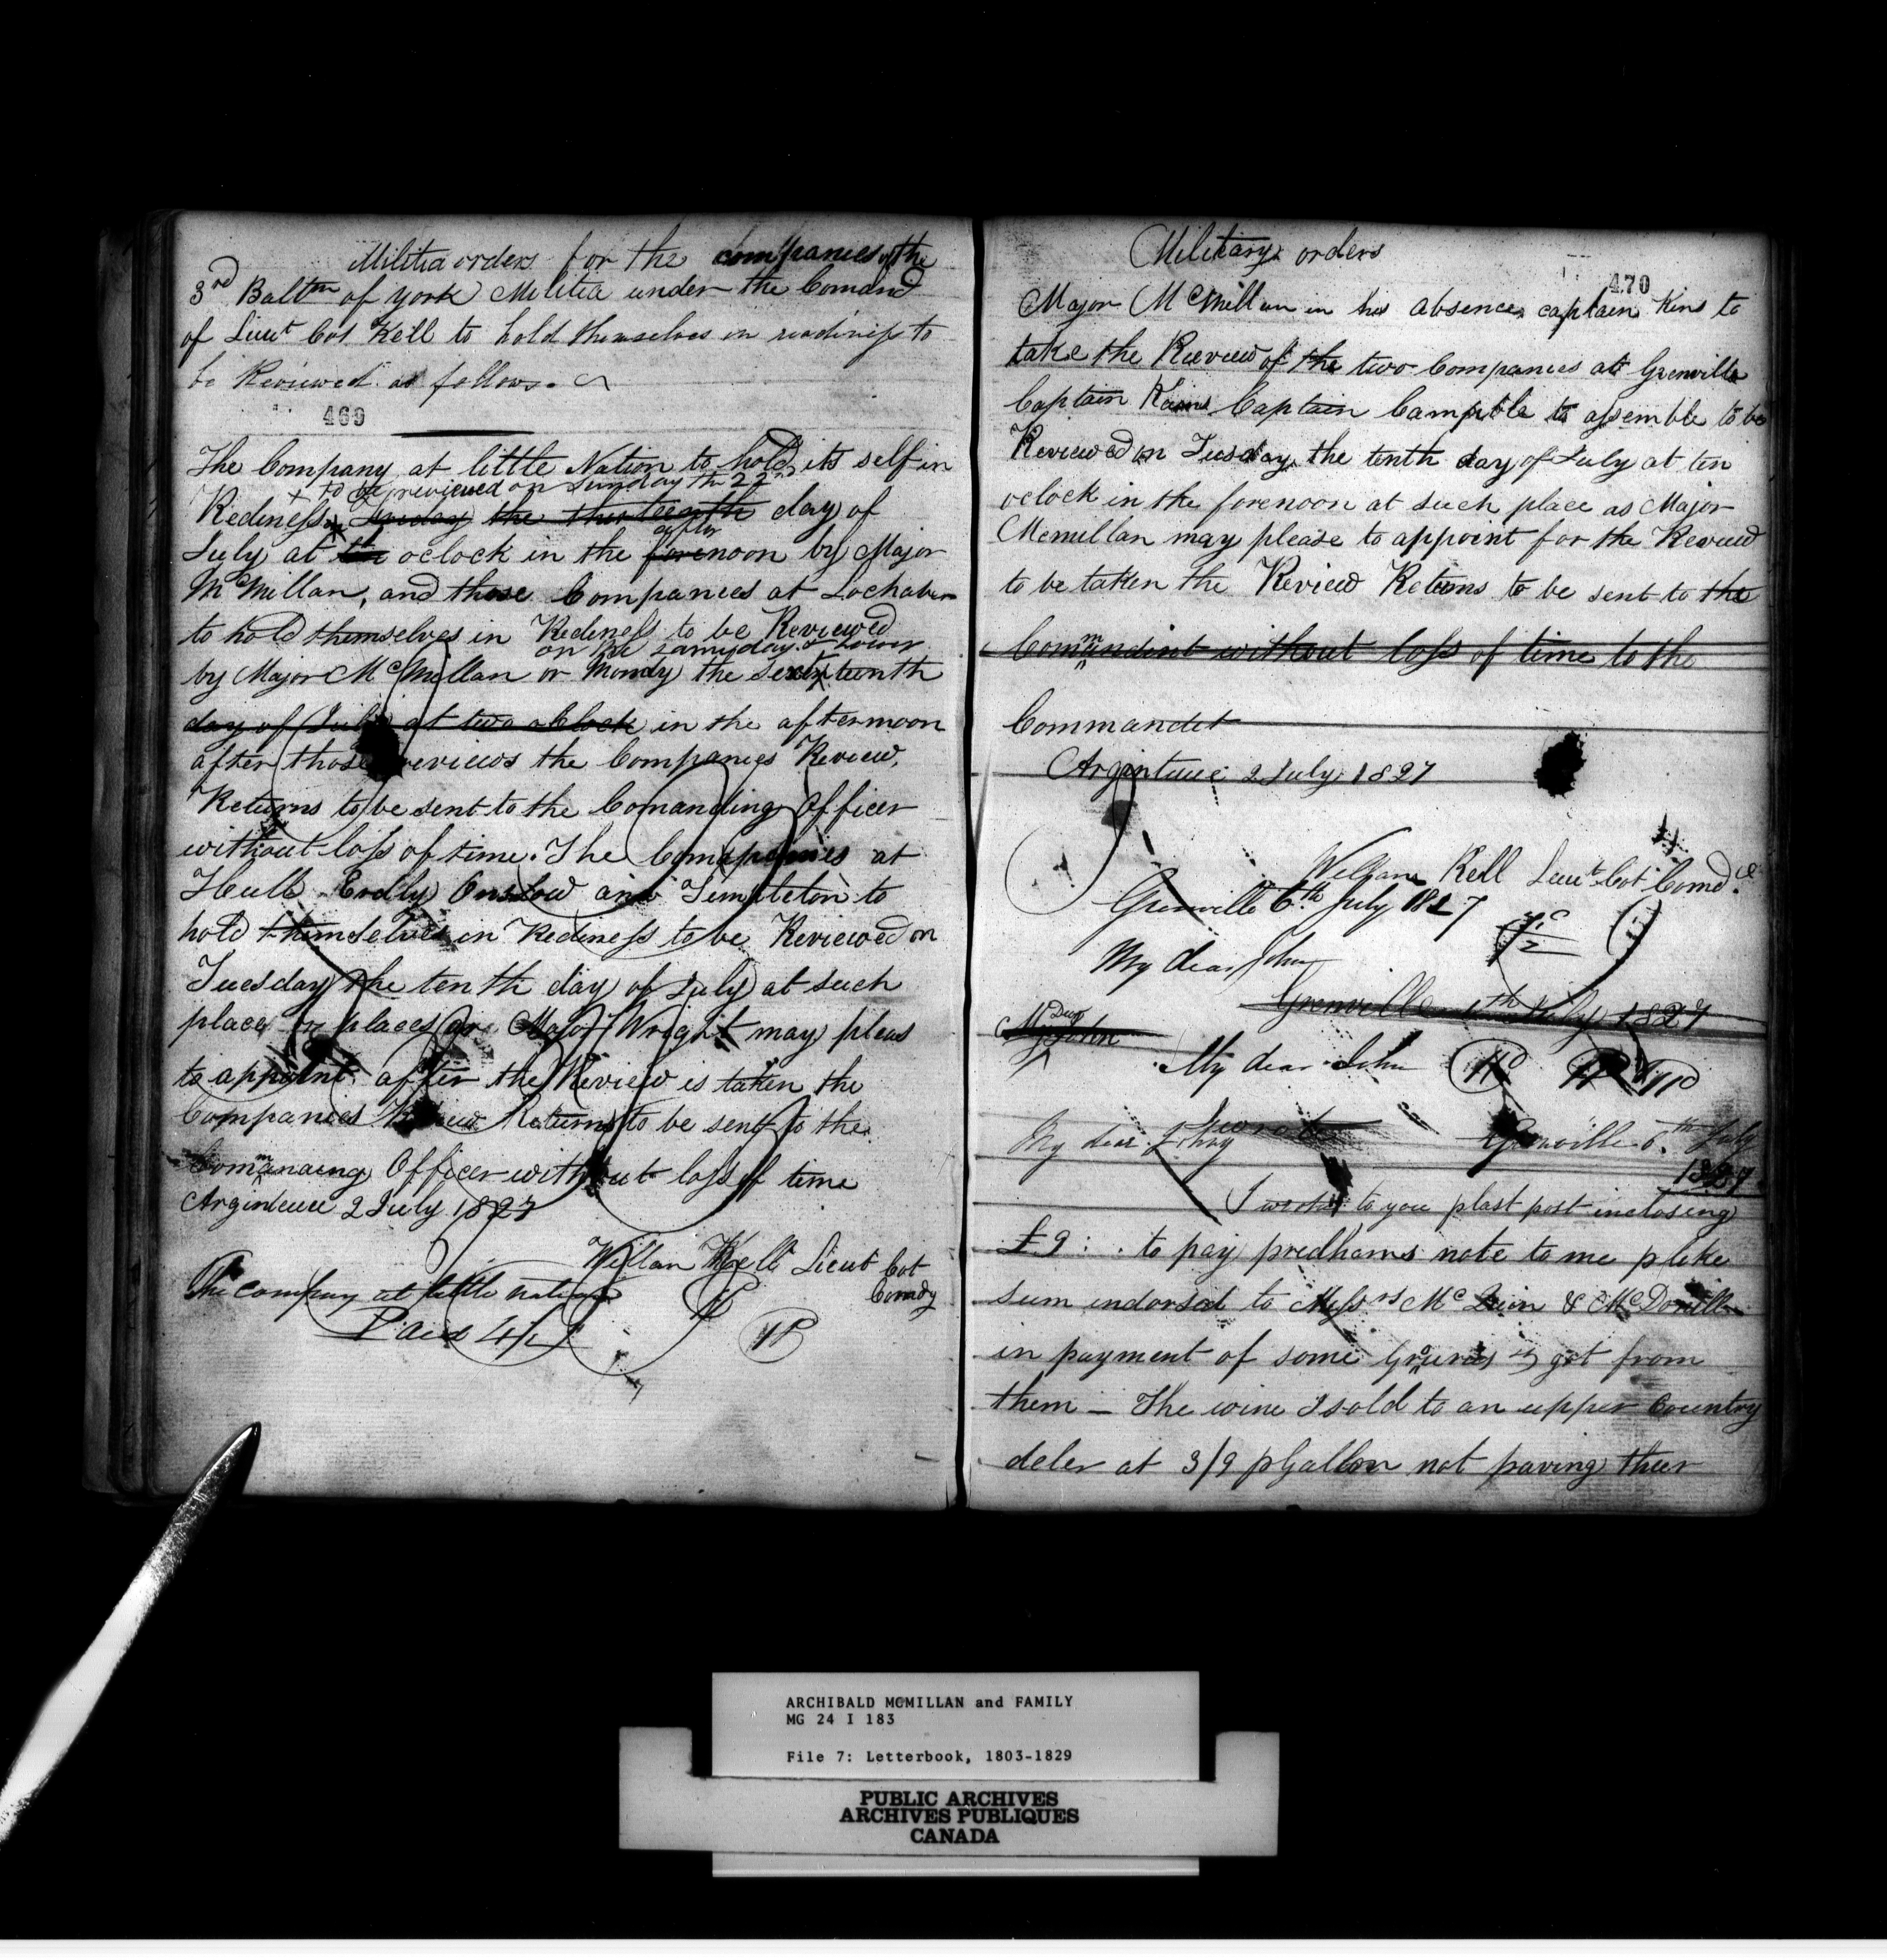 Militia orders for the companies of the
3rd Baltn of york Militia under the Comand
of Lieut Col Kell to hold themselves in readiness to
be Reviewed as follows.
469
The Company at little Nation to hold its self in
to be reviewed on Sunday th 22nd
Rediness Friday the thirteenth day of
after
July at ten oclock in the forenoon by Major
McMillan, and those Companies at Lochaber
to hold themselves in Rediness to be Reviewed
on the same day & hour
by Major McMillan or Monday the sixteenth
day of July at two oClock in the afternoon
after those reviews the Companies Review,
Returns to be sent to the Comanding Officer
without loss of time. The Companies at
Hull Erdly Onslow and Templeton to
hold themselves in Rediness to be Reviewed on
Tuesday the tenth day of July at such
place or places as Major Wright may pleas
to appoint after the Review is taken the
Companies Review Returns to be sent to the
Commanding Officer without loss of time
Arginteuce 2 July 1827
Willan Kell Lieut Col
Comdg
The company at little nation
Paid 4/
Military orders
470
Major McMillan in his absence captain Kins to
take the Rieview of the two Companies at Grenville
Captain Kains Captain Campble to assemble to be
Reviewed on Tuesday the tenth day of July at ten
oclock in the forenoon at such place as Major
Mcmillan may please to appoint for the Review
to be taken the Review Returns to be sent to the
Commandint without loss of time to the
Commandet
Arginteuce 2 July 1827
William Kell Lieut Col Comd
Grenville 6th July 1827
My dear John
Grenville 6th July 1827
My Dear John
My dear John
My dear Johny
Grenville 6th July
1827
I wrote to you p last post inclosing
£9 : . to pay predhams note to me p like
sum indorsed to Messrs McQuin & McDonell
in payment of some Grouries I got from
them – The wine I sold to an upper Country
deler at 3/9 p Gallon not paving their
ARCHIBALD MCMILLAN and FAMILY
MG 24 I 183
File 7: Letterbook, 1803-1829
PUBLIC ARCHIVES
ARCHIVES PUBLIQUES
CANADA